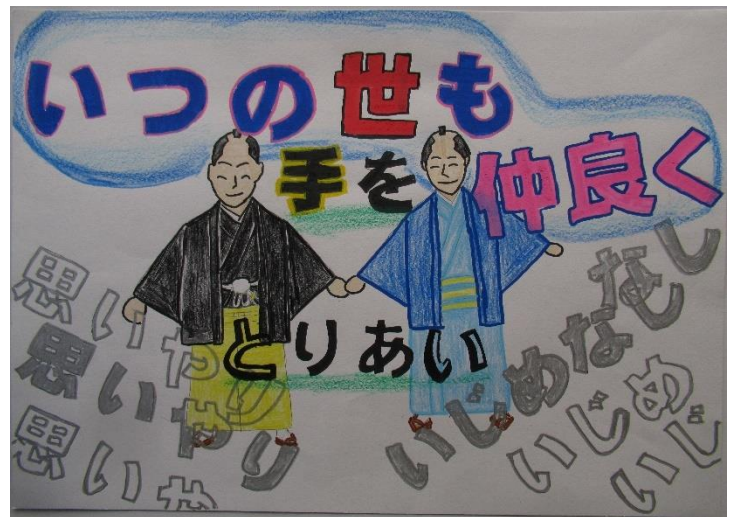 いつの世も
手を仲良く
とりあい
思いやり
思いやり
思いや
なし
いじめなし
いじめ
いじ